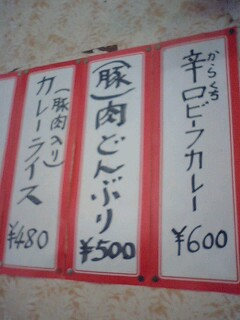 からくち
辛口ビーフカレー
¥600
(豚)肉どんぶり
¥500
カレーライス
(豚肉入り)
¥480